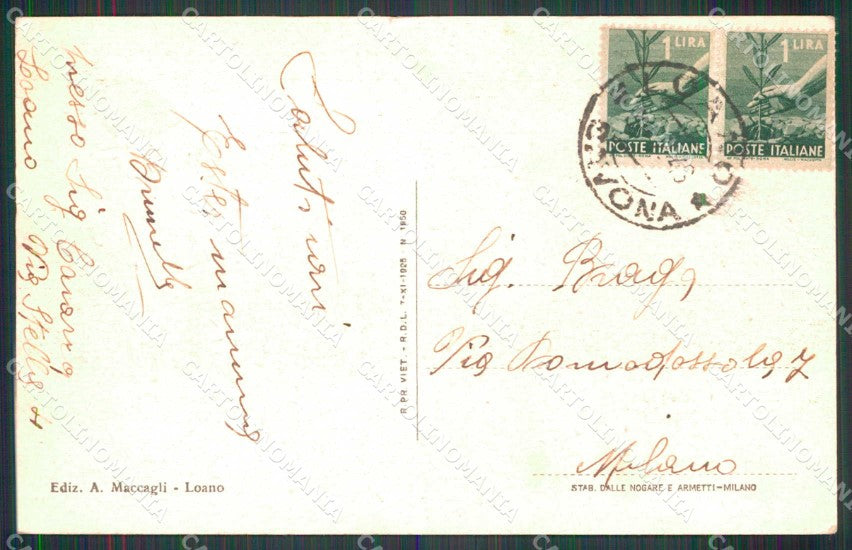 1 LIRA
POSTE ITALIANE
1 LIRA
POSTE ITALIANE
SAVONA
Saluti cari
Brunella
presso Sig
Loano Via Stella 4
R. PR. VIET. - R. D. L. 7-XI-1925 N. 1950
Sig. Braga
Via Domodossola, 7
Milano
Ediz. A. Maccagli - Loano
STAB. DALLE NOGARE E ARMETTI-MILANO
CARTOLINOMANIA